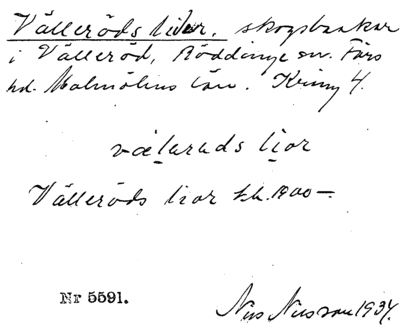 Välleröds lider, skogsbackar
i Välleröd, Röddinge sn. Färs
hd. Malmöhus län.
välaruds lior
Välleröds lior 1900–
Nr 5591.
Nils Nilsson 1934.